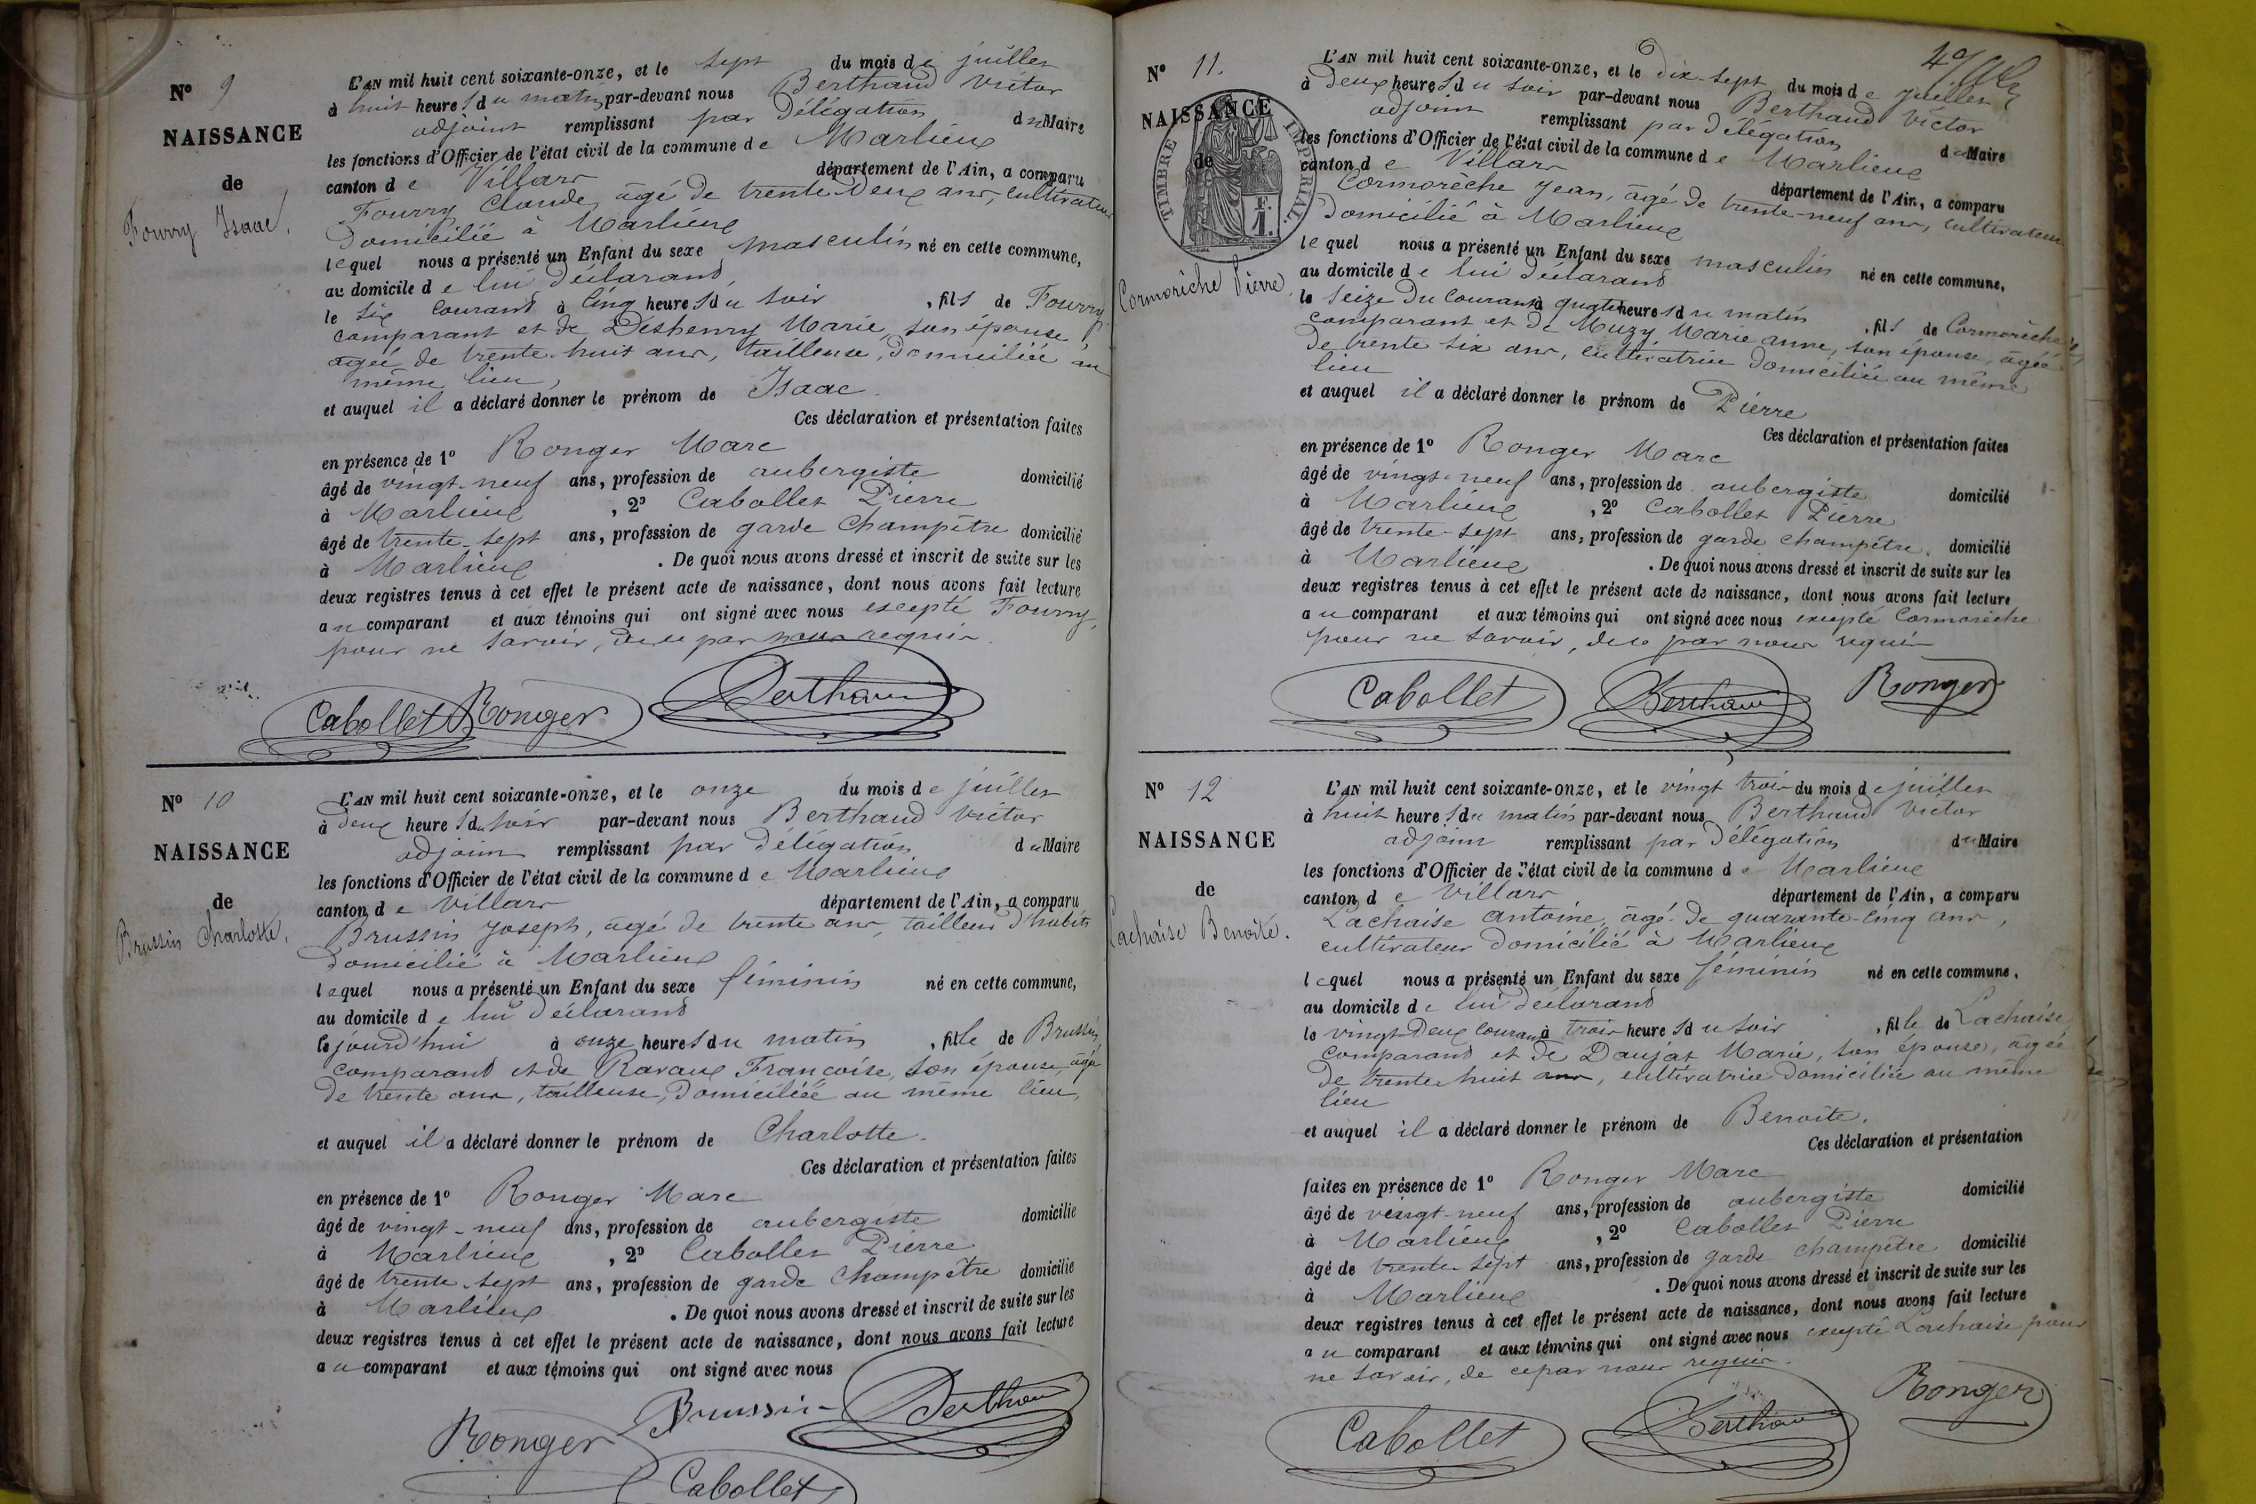 N° 9
NAISSANCE
de
Fourry Isaac.
L'AN mil huit cent soixante-onze, et le sept du mois de juillet
à huit heures du matin par-devant nous Berthaud Victor
adjoint remplissant par Délégation du Maire
les fonctions d'Officier de l'état civil de la commune de Marlieux
canton de Villars département de l'Ain, a comparu
Fourry Claude, âgé de trente-deux ans, cultivateur
domicilié à Marlieux
lequel nous a présenté un Enfant du sexe masculin né en cette commune,
au domicile de lui déclarant
le six courant à cinq heures du soir, fils de Fourry
comparant et de Deshenry Marie, son épouse,
âgée de trente-huit ans, tailleuse, domiciliée au
même lieu,
et auquel il a déclaré donner le prénom de Isaac.
Ces déclaration et présentation faites
en présence de 1° Ronger Marc
âgé de vingt-neuf ans, profession de aubergiste domicilié
à Marlieux, 2° Cabollet Pierre
âgé de trente-sept ans, profession de garde champêtre domicilié
à Marlieux. De quoi nous avons dressé et inscrit de suite sur les
deux registres tenus à cet effet le présent acte de naissance, dont nous avons fait lecture
au comparant et aux témoins qui ont signé avec nous excepté Fourry,
pour ne savoir, de ce par nous requis.
Cabollet Ronger Berthaud
N° 10
NAISSANCE
de
Brussin Charlotte.
L'AN mil huit cent soixante-onze, et le onze du mois de juillet
à deux heures du soir par-devant nous Berthaud Victor
adjoint remplissant par Délégation du Maire
les fonctions d'Officier de l'état civil de la commune de Marlieux
canton de Villars département de l'Ain, a comparu
Brussin Joseph, âgé de trente ans, tailleur d'habits
domicilié à Marlieux
lequel nous a présenté un Enfant du sexe féminin né en cette commune,
au domicile de lui déclarant
le jourd'hui à onze heures du matin, fille de Brussin,
comparant et de Ravaux Françoise, son épouse, âgée
de trente ans, tailleuse, domiciliée au même lieu,
et auquel il a déclaré donner le prénom de Charlotte.
Ces déclaration et présentation faites
en présence de 1° Ronger Marc
âgé de vingt-neuf ans, profession de aubergiste domicilié
à Marlieux, 2° Cabollet Pierre
âgé de trente-sept ans, profession de garde champêtre domicilié
à Marlieux. De quoi nous avons dressé et inscrit de suite sur les
deux registres tenus à cet effet le présent acte de naissance, dont nous avons fait lecture
au comparant et aux témoins qui ont signé avec nous
Brussin Berthaud
Ronger
Cabollet
N° 11.
NAISSANCE
de
TIMBRE IMPERIAL.
Cormorèche Pierre.
L'AN mil huit cent soixante-onze, et le dix-sept du mois de juillet
à deux heures du soir par-devant nous Berthaud Victor
adjoint remplissant par Délégation du Maire
les fonctions d'Officier de l'état civil de la commune de Marlieux
canton de Villars département de l'Ain, a comparu
Cormorèche Jean, âgé de trente-neuf ans, cultivateur
domicilié à Marlieux
lequel nous a présenté un Enfant du sexe masculin né en cette commune,
au domicile de lui déclarant
le seize du courant à quatre heures du matin, fils de Cormorèche
comparant et de Muzy Marie anne, son épouse, âgée
de trente six ans, cultivatrice domiciliée au même
lieu
et auquel il a déclaré donner le prénom de Pierre
Ces déclaration et présentation faites
en présence de 1° Ronger Marc
âgé de vingt-neuf ans, profession de aubergiste domicilié
à Marlieux, 2° Cabollet Pierre
âgé de trente-sept ans, profession de garde champêtre. domicilié
à Marlieux. De quoi nous avons dressé et inscrit de suite sur les
deux registres tenus à cet effet le présent acte de naissance, dont nous avons fait lecture
au comparant et aux témoins qui ont signé avec nous excepté Cormorèche
pour ne savoir, de ce par nous requis
Cabollet Berthaud Ronger
N° 12
NAISSANCE
de
Lachaise Benoite.
L'AN mil huit cent soixante-onze, et le vingt trois du mois de juillet
à huit heures du matin par-devant nous Berthaud Victor
adjoint remplissant par Délégation du Maire
les fonctions d'Officier de l'état civil de la commune de Marlieux
canton de Villars département de l'Ain, a comparu
Lachaise Antoine, âgé de quarante-cinq ans,
cultivateur domicilié à Marlieux
lequel nous a présenté un Enfant du sexe féminin né en cette commune,
au domicile de lui déclarant
le vingt-deux courant à trois heures du soir, fille de Lachaise
comparant et de Daujat Marie, son épouse, âgée
de trente-huit ans, cultivatrice domiciliée au même
lieu
et auquel il a déclaré donner le prénom de Benoite.
Ces déclaration et présentation
faites en présence de 1° Ronger Marc
âgé de vingt-neuf ans, profession de aubergiste domicilié
à Marlieux, 2° Cabollet Pierre
âgé de trente-sept ans, profession de garde champêtre domicilié
à Marlieux. De quoi nous avons dressé et inscrit de suite sur les
deux registres tenus à cet effet le présent acte de naissance, dont nous avons fait lecture
au comparant et aux témoins qui ont signé avec nous excepté Lachaise pour
ne savoir, de ce par nous requis.
Cabollet Berthaud Ronger